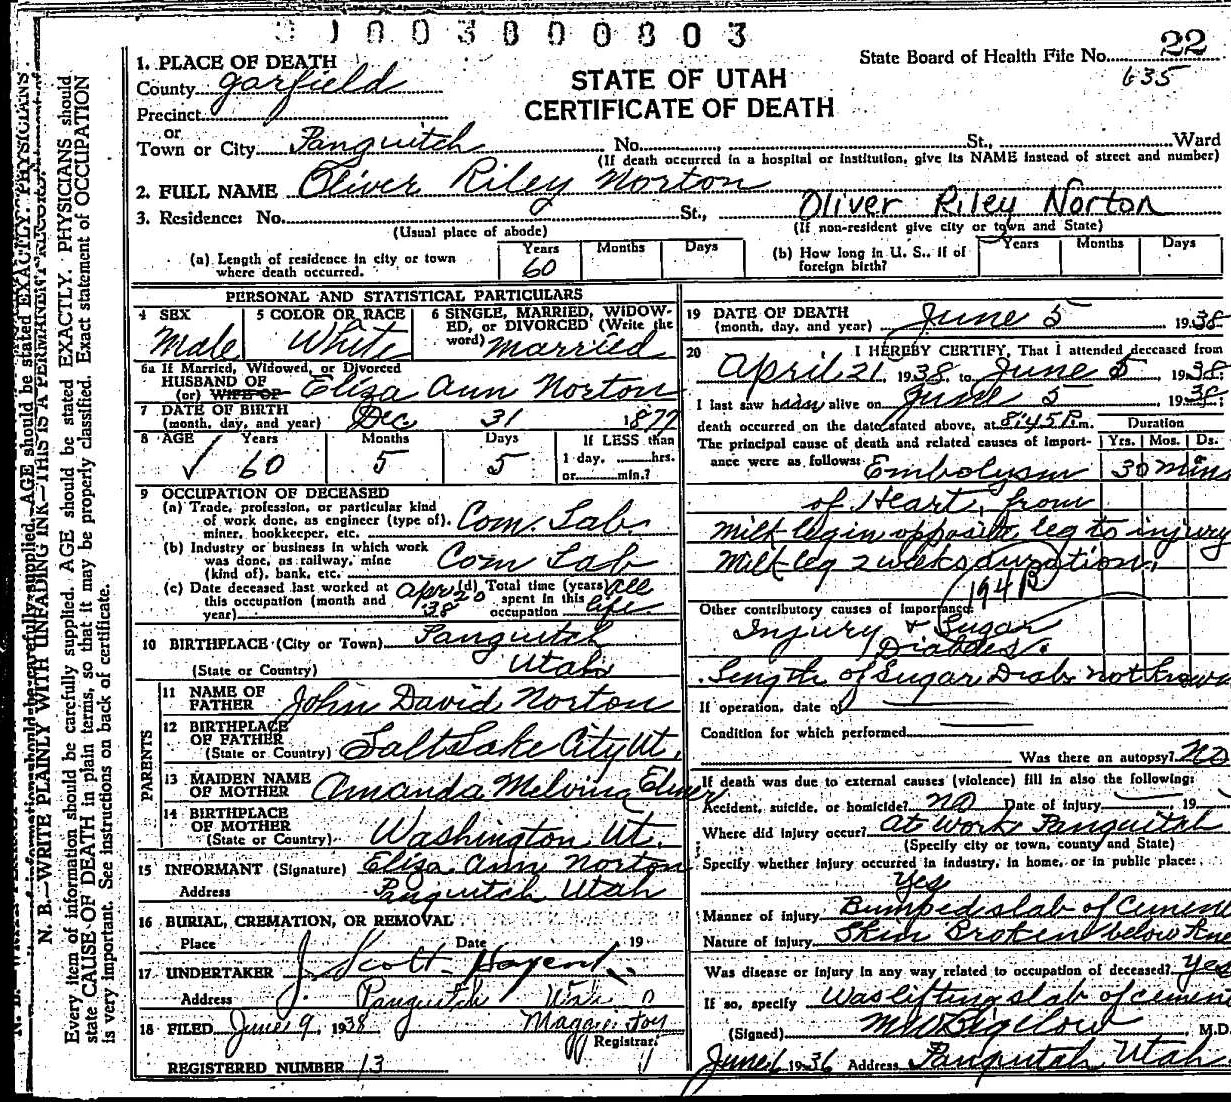 0 1 0 0 3 0 0 0 8 0 3
State Board of Health File No. 22
635
1. PLACE OF DEATH
STATE OF UTAH
CERTIFICATE OF DEATH
County Garfield
Precinct
or
Town or City Panguitch No. St., Ward
(If death occurred in a hospital or institution, give its NAME instead of street and number)
2. FULL NAME Oliver Riley Norton
Oliver Riley Norton
3. Residence: No. St.,
(Usual place of abode) (If non-resident give city or town and State)
(a) Length of residence in city or town where death occurred. Years 60 Months Days
(b) How long in U. S., if of foreign birth? Years Months Days
PERSONAL AND STATISTICAL PARTICULARS
4 SEX Male
5 COLOR OR RACE White
6 SINGLE, MARRIED, WIDOWED, or DIVORCED (Write the word) Married
6a If Married, Widowed, or Divorced
HUSBAND OF
(or) WIFE OF Eliza Ann Norton
7 DATE OF BIRTH
(month, day, and year) Dec 31 1877
8 AGE Years Months Days If LESS than
✓ 60 5 5 1 day, hrs.
or min.?
9 OCCUPATION OF DECEASED
(a) Trade, profession, or particular kind
of work done, as engineer (type of), Com. Lab.
miner, bookkeeper, etc.
(b) Industry or business in which work
was done, as railway, mine Com Lab
(kind of), bank, etc.
(c) Date deceased last worked at
this occupation (month and
year) Apr 20 '38
(d) Total time (years)
spent in this
occupation all life
10 BIRTHPLACE (City or Town) Panguitch
(State or Country) Utah
PARENTS
11 NAME OF
FATHER John David Norton
12 BIRTHPLACE
OF FATHER
(State or Country) Salt Lake City Ut.
13 MAIDEN NAME
OF MOTHER Amanda Melvina Elmer
14 BIRTHPLACE
OF MOTHER
(State or Country) Washington Ut.
15 INFORMANT (Signature) Eliza Ann Norton
Address Panguitch Utah
16 BURIAL, CREMATION, OR REMOVAL
Place Date 19
17 UNDERTAKER J. Scott
Address Panguitch
18 FILED June 9, 1938 Maggie Foy
Registrar.
REGISTERED NUMBER 13
19 DATE OF DEATH
(month, day, and year) June 5 1938
20 I HEREBY CERTIFY, That I attended deceased from
April 21, 1938, to June 5 1938
I last saw him alive on June 5 1938
death occurred on the date stated above, at 8:45 P.m.
The principal cause of death and related causes of importance were as follows:
Duration
Yrs. Mos. Ds.
Embolysm 30 mins
of Heart, from
Milk leg in opposite leg to injury
Milk leg 2 weeks duration.
194B
Other contributory causes of importance:
Injury & Sugar
Diabetes.
Length of Sugar Diab. not known
If operation, date of
Condition for which performed
Was there an autopsy? No
If death was due to external causes (violence) fill in also the following:
Accident, suicide, or homicide? No Date of injury , 19
Where did injury occur? At Work Panguitch
(Specify city or town, county and State)
Specify whether injury occurred in industry, in home, or in public place:
Yes
Manner of injury Bumped slab of Cement
Nature of injury Skin Broken below Knee
Was disease or injury in any way related to occupation of deceased? Yes
If so, specify Was lifting slab of cement
(Signed) M W Bigelow, M.D.
June 6 1936 Address Panguitch Utah
N. B.—WRITE PLAINLY WITH UNFADING INK—THIS IS A PERMANENT RECORD.
Every item of information should be carefully supplied. AGE should be stated EXACTLY. PHYSICIANS should
state CAUSE OF DEATH in plain terms, so that it may be properly classified. Exact statement of OCCUPATION
is very important. See instructions on back of certificate.